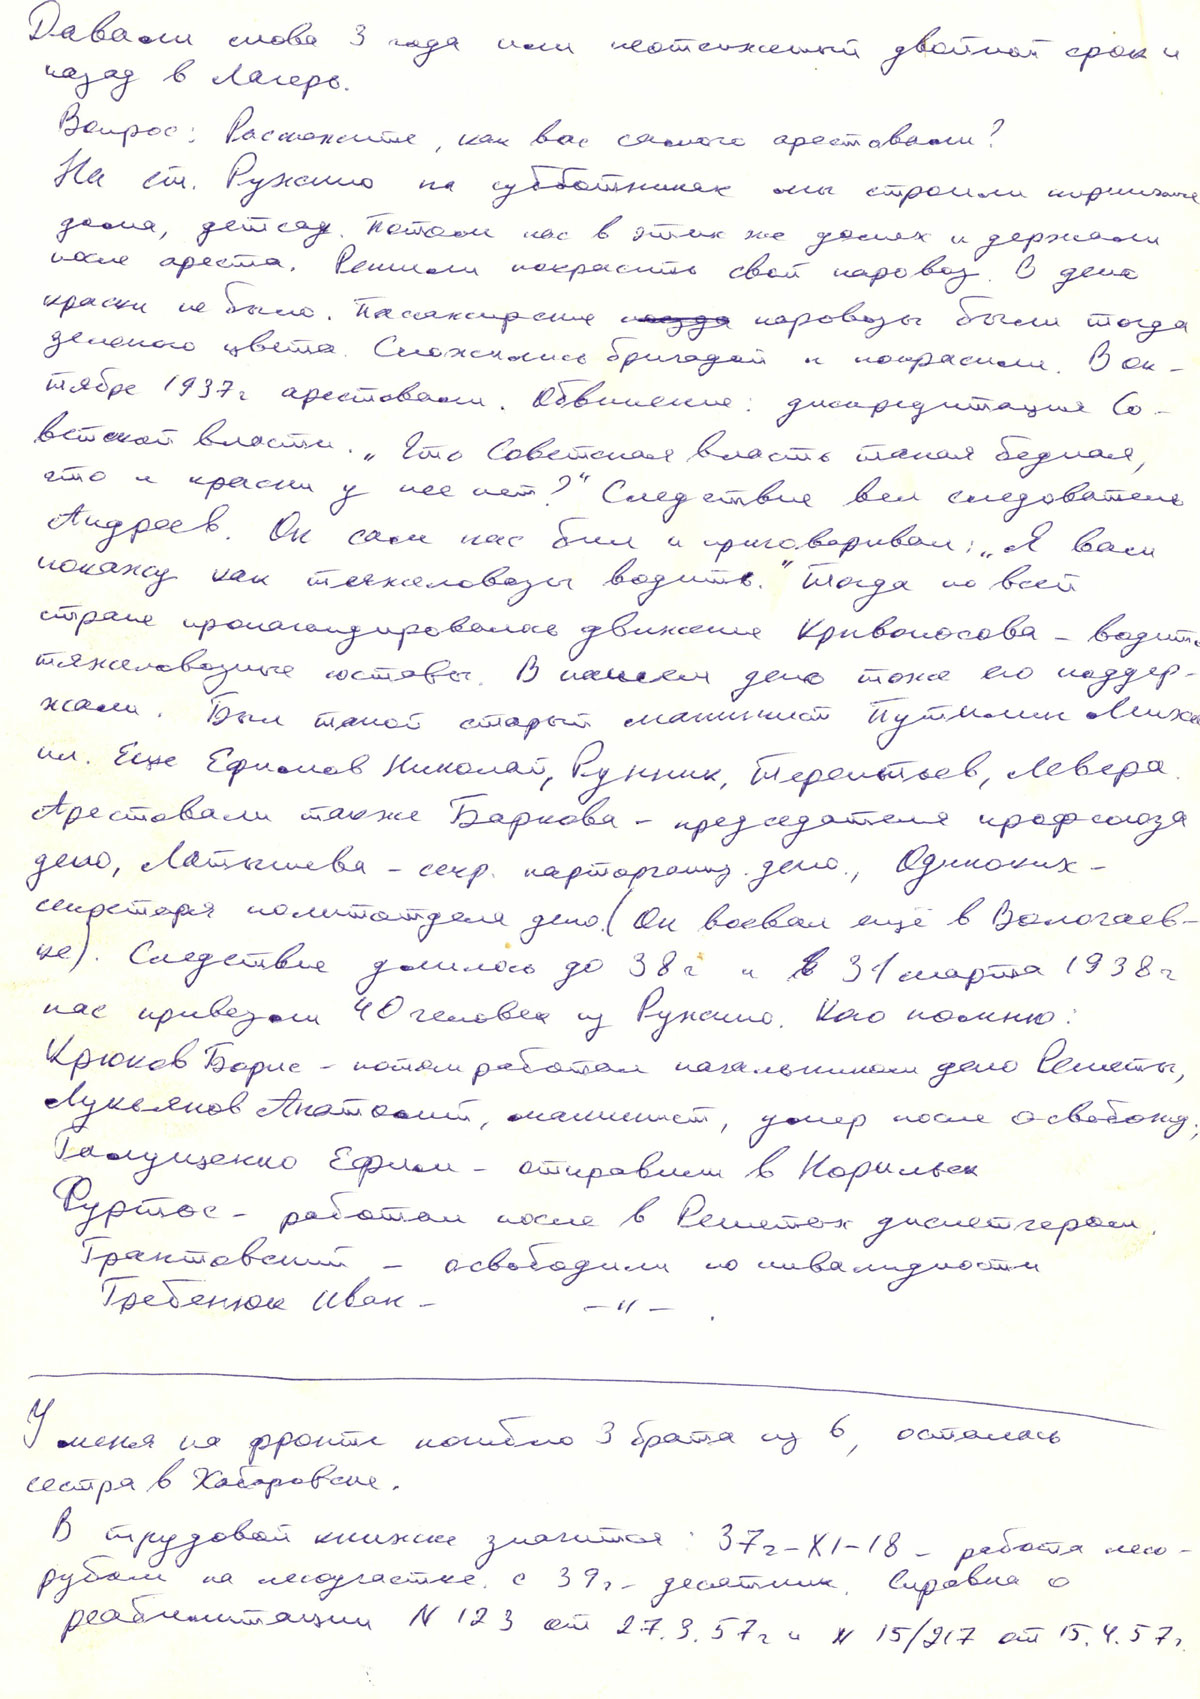 Давали снова 3 года или неотсиженный двойной срок и
назад в Лагерь.
Вопрос: Расскажите, как вас самого арестовали?
На ст. Ружино на субботниках мы строили кирпичные
дома, детсад. Потом нас в этих же домах и держали
после ареста. Решили покрасить свой паровоз. В депо
краски не было. Пассажирские поезда паровозы были тогда
зеленого цвета. Сложились бригадой и покрасили. В ок-
тябре 1937г арестовали. Обвинение: дискредитация Со-
ветской власти. „Что Советская власть такая бедная,
что и краски у нее нет?" Следствие вел следователь
Андреев. Он сам нас бил и приговаривал: „Я вам
покажу как тяжеловозы водить." Тогда по всей
стране пропагандировалось движение Кривоносова - водить
тяжеловозные составы. В нашем депо тоже его поддер-
жали. Был такой старый машинист Путилин Миха
ил. Еще Ефимов Николай, Рунник, Терентьев, Левера.
Арестовали также Баркова - председателя профсоюза
депо, Латышева - секр. парторганиз. депо., Одиноких -
секретаря политотдела депо. (Он воевал ещё в Волочаев-
ке). Следствие длилось до 38г и в 31 марта 1938г
нас привезли 40 человек из Ружино. Кого помню:
Крюков Борис - потом работал начальником депо Решеты,
Лукьянов Анатолий, машинист, умер после освобожд.;
Галущенко Ефим - отправили в Норильск
Фуртос - работал после в Решетах диспетчером.
Трактовский - освободили по инвалидности
Гребенюк Иван - -"- .
У меня на фронте погибло 3 брата из 6, осталась
сестра в Хабаровске.
В трудовой книжке значится: 37г-XI-18 - работа лесо-
рубом на лесоучастке. с 39г - десятник. Справка о
реабилитации N 123 от 27.3.57г и N 15/217 от 15.4.57г.